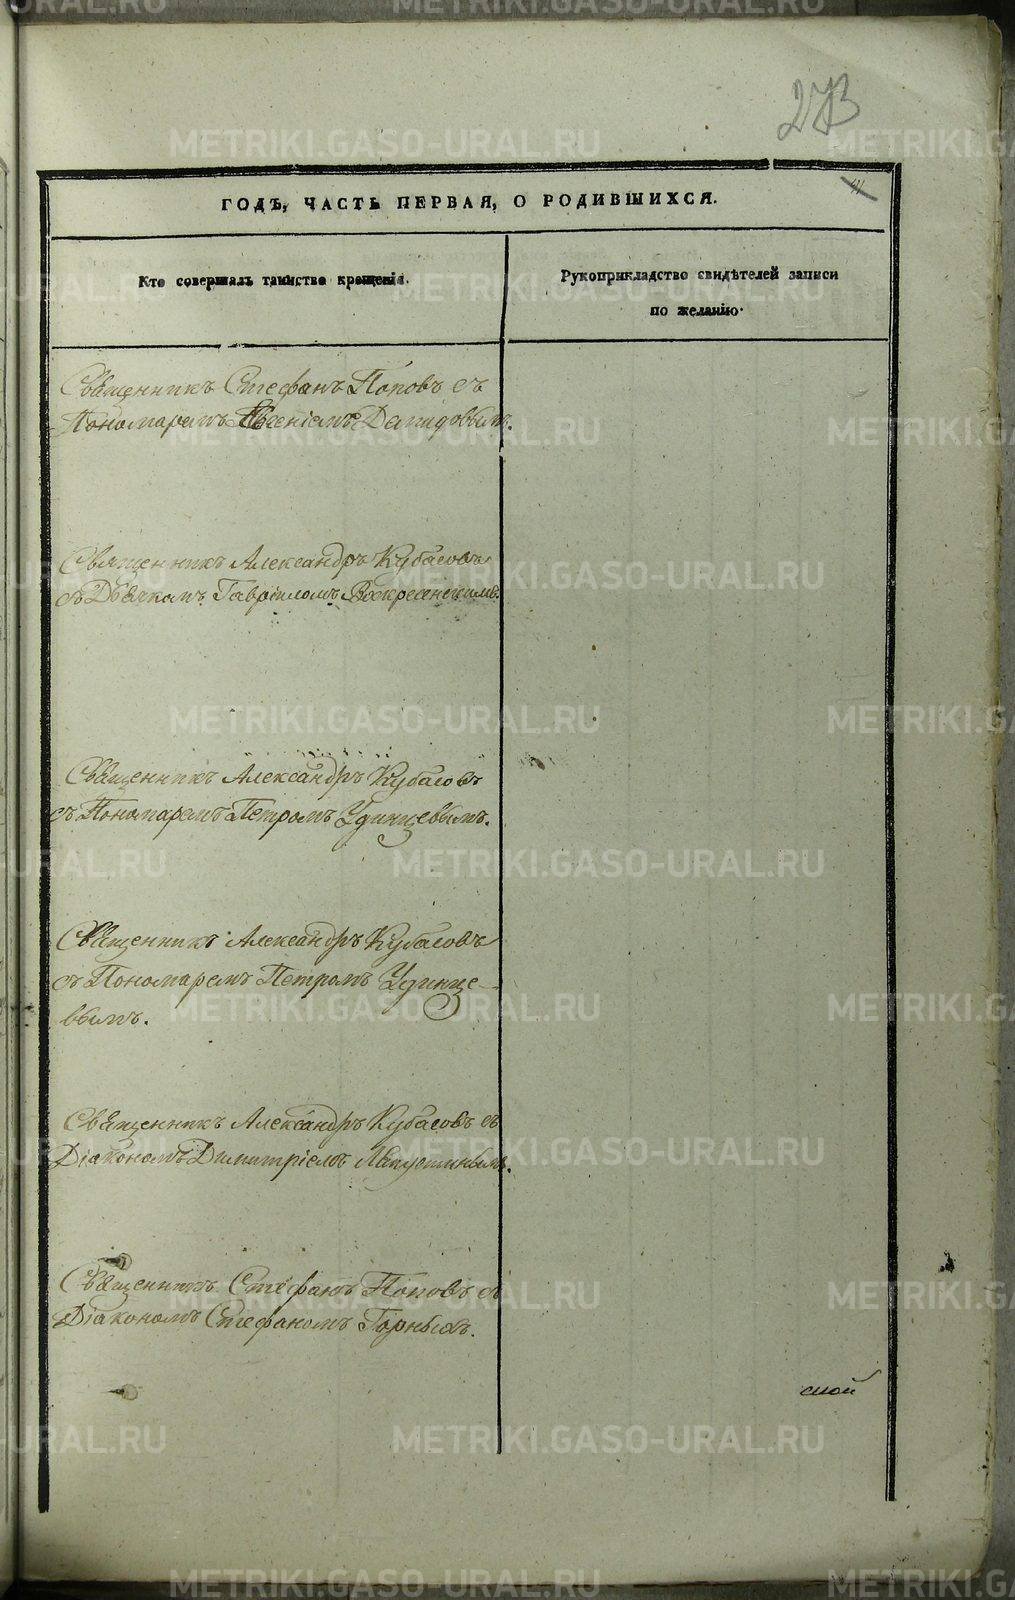 273
ГОДЪ, ЧАСТЬ ПЕРВАЯ, О РОДИВШИХСЯ.
Кто совершалъ таинство крещенія.
Рукоприкладство свидѣтелей записи
по желанію.
Священникъ Стефанъ Поповъ съ
Пономаремъ Давидовымъ.
Священникъ Александръ Кубасовъ
съ Дьячкамъ Гавріиломъ Воскресенскимъ.
Священникъ Александръ Кубасовъ
съ Пономаремъ Петромъ Удинцевымъ.
Священникъ Александръ Кубасовъ
съ Пономаремъ Петромъ Удинце-
вымъ.
Священникъ Александръ Кубасовъ съ
Діакономъ Димитріемъ
Священникъ Стефанъ Поповъ съ
Діакономъ Стефаномъ Горныхъ.
METRIKI.GASO-URAL.RU